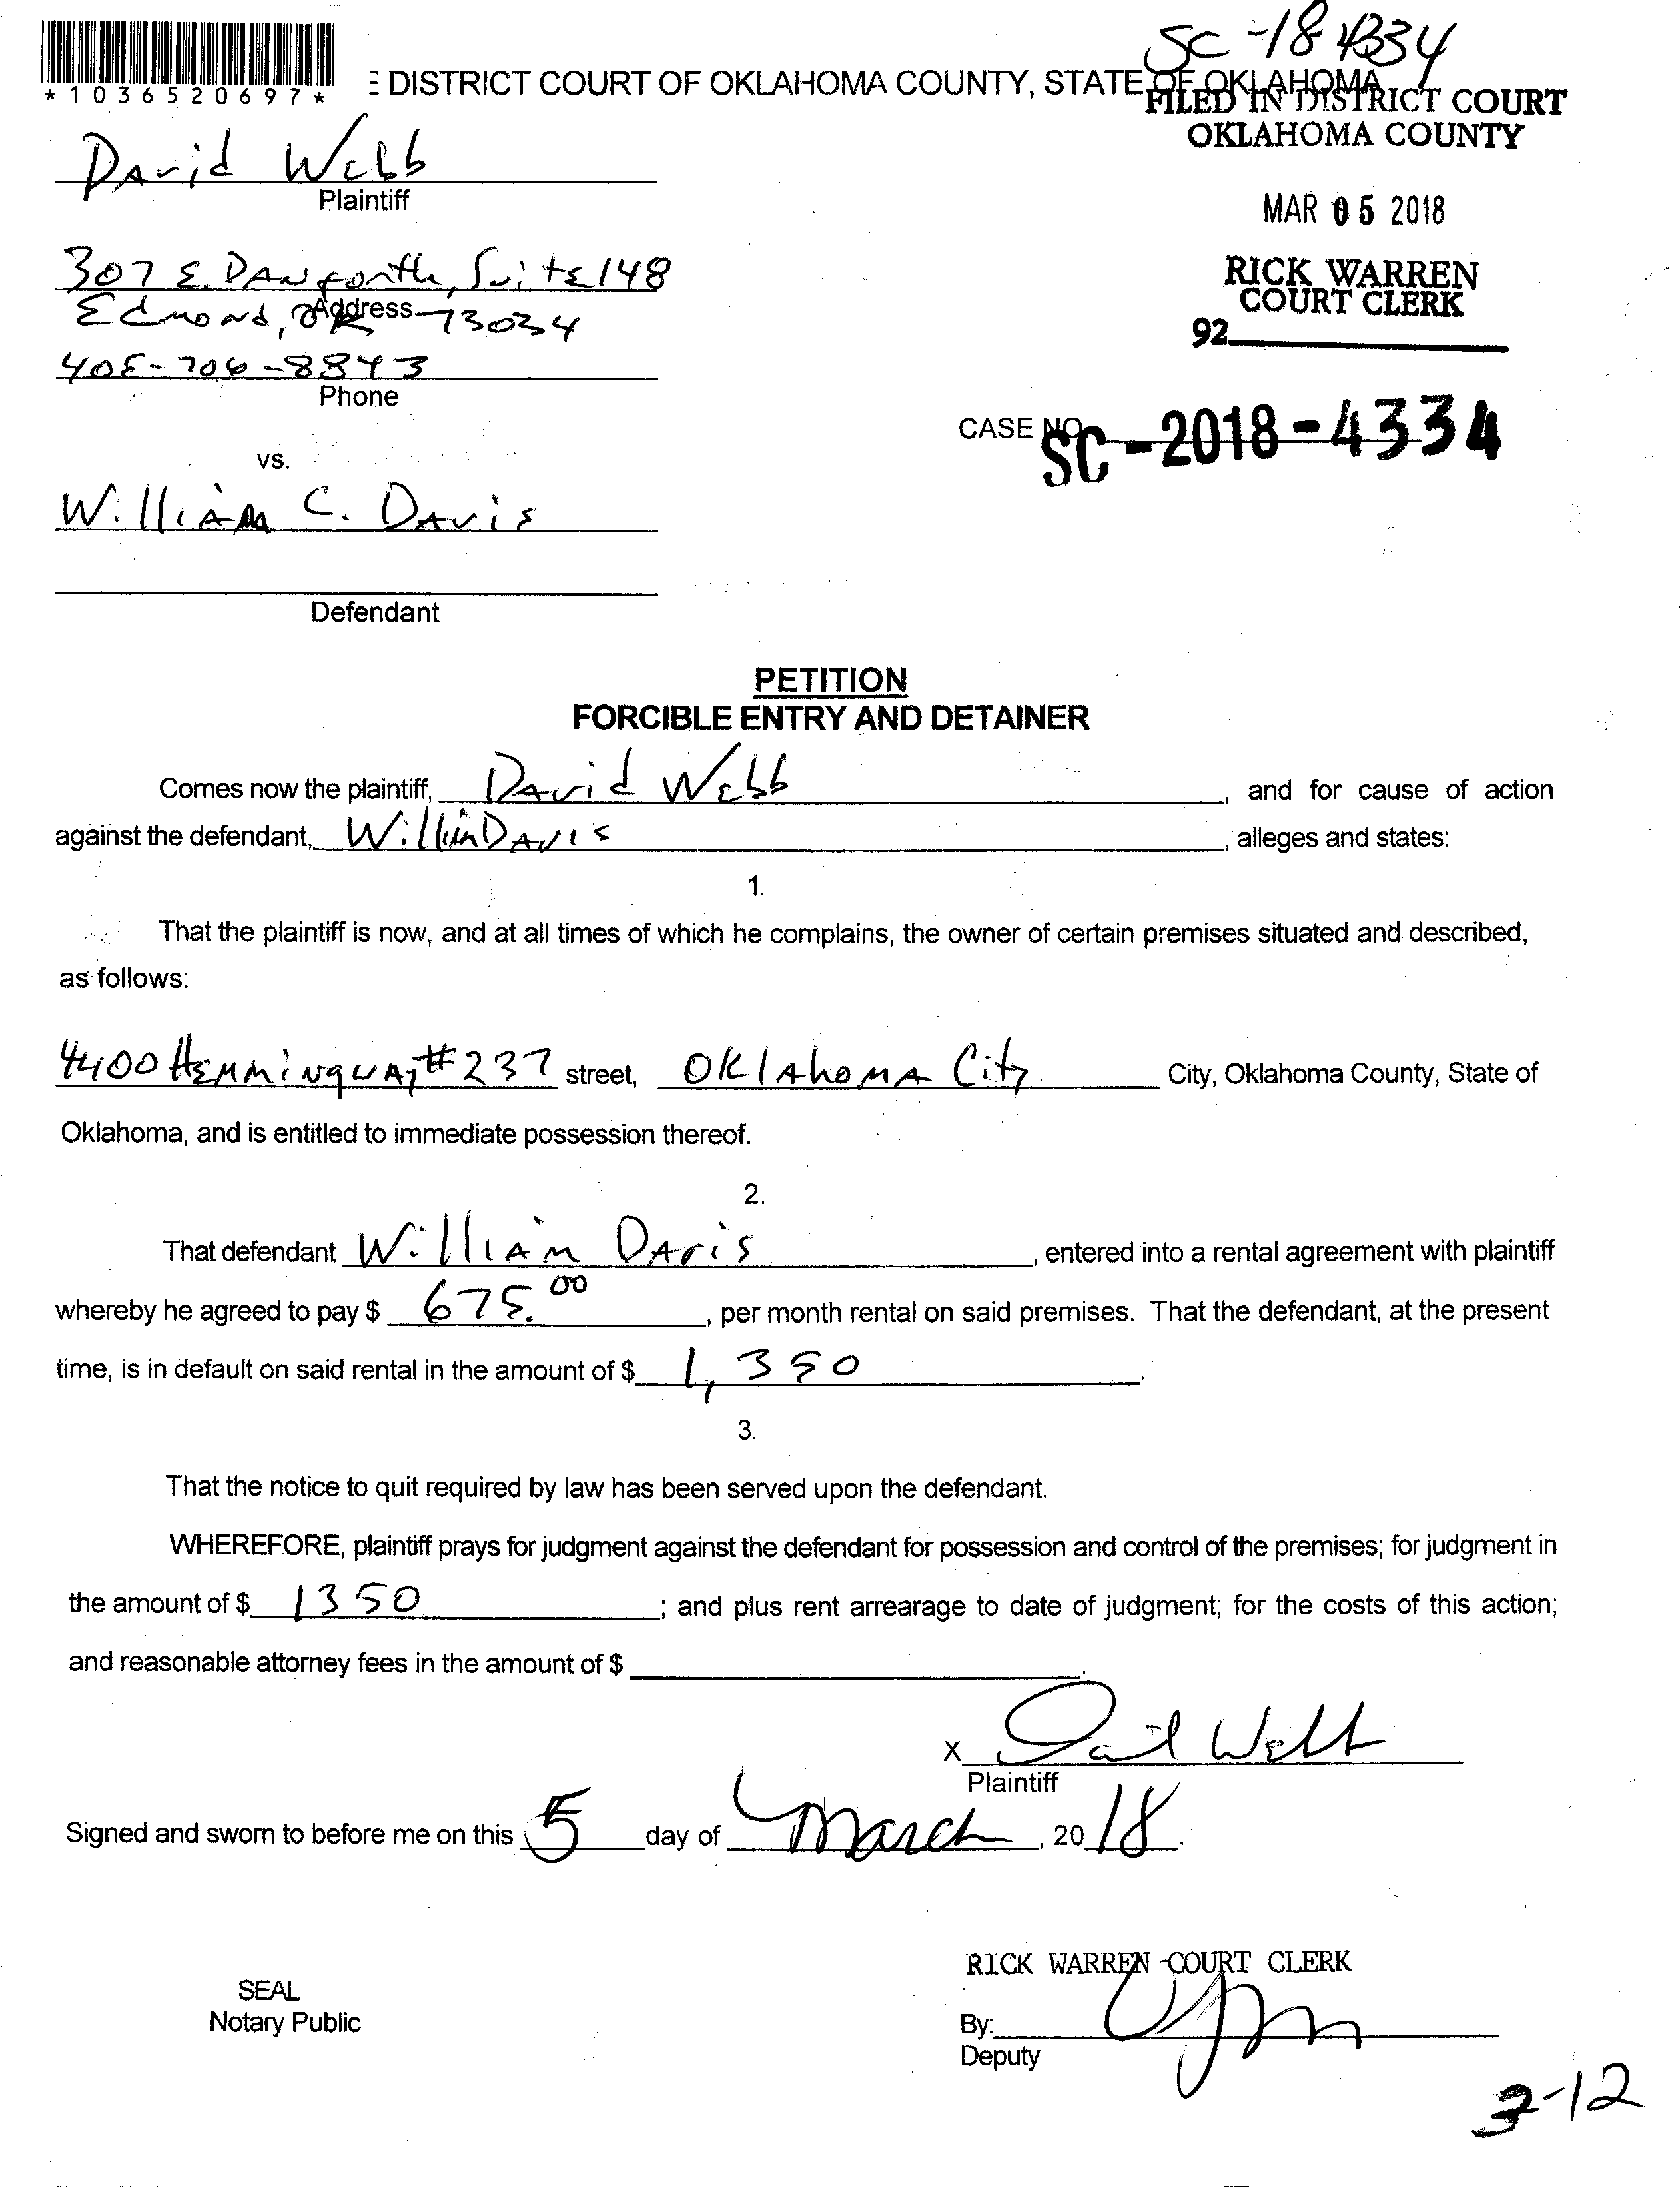 SC-18 4334
*1036520697*
E DISTRICT COURT OF OKLAHOMA COUNTY, STATE OF OKLAHOMA
FILED IN DISTRICT COURT
OKLAHOMA COUNTY
David Webb
Plaintiff
MAR 05 2018
307 E. Danforth, Suite 148
RICK WARREN
Edmond, OK 73034
Address
COURT CLERK
92
405-706-8843
Phone
CASE NO. SC-2018-4334
vs.
William C. Davis
Defendant
PETITION
FORCIBLE ENTRY AND DETAINER
Comes now the plaintiff, David Webb, and for cause of action
against the defendant, William Davis, alleges and states:
1.
That the plaintiff is now, and at all times of which he complains, the owner of certain premises situated and described,
as follows:
4400 Hemmingway #237 street, Oklahoma City City, Oklahoma County, State of
Oklahoma, and is entitled to immediate possession thereof.
2.
That defendant William Davis, entered into a rental agreement with plaintiff
whereby he agreed to pay $ 675.00, per month rental on said premises. That the defendant, at the present
time, is in default on said rental in the amount of $ 1,350.
3.
That the notice to quit required by law has been served upon the defendant.
WHEREFORE, plaintiff prays for judgment against the defendant for possession and control of the premises; for judgment in
the amount of $ 1350; and plus rent arrearage to date of judgment; for the costs of this action;
and reasonable attorney fees in the amount of $ .
X David Webb
Plaintiff
Signed and sworn to before me on this 5 day of March, 2018.
RICK WARREN COURT CLERK
SEAL
Notary Public
By:
Deputy
3-12